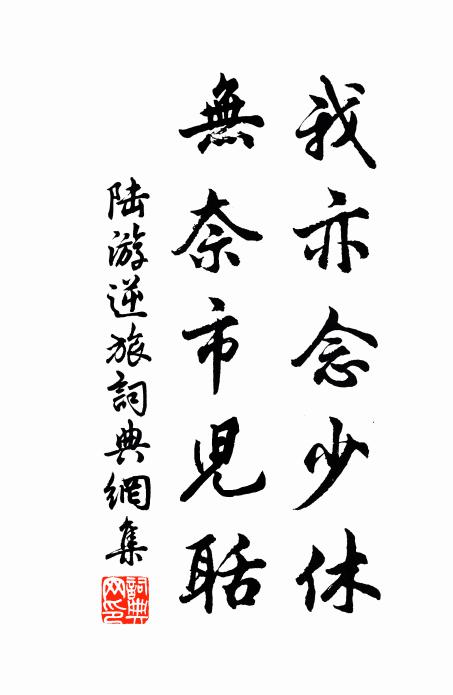 我亦念少休
無奈市兒聒
陸游逆旅詞典網集
詞典網印